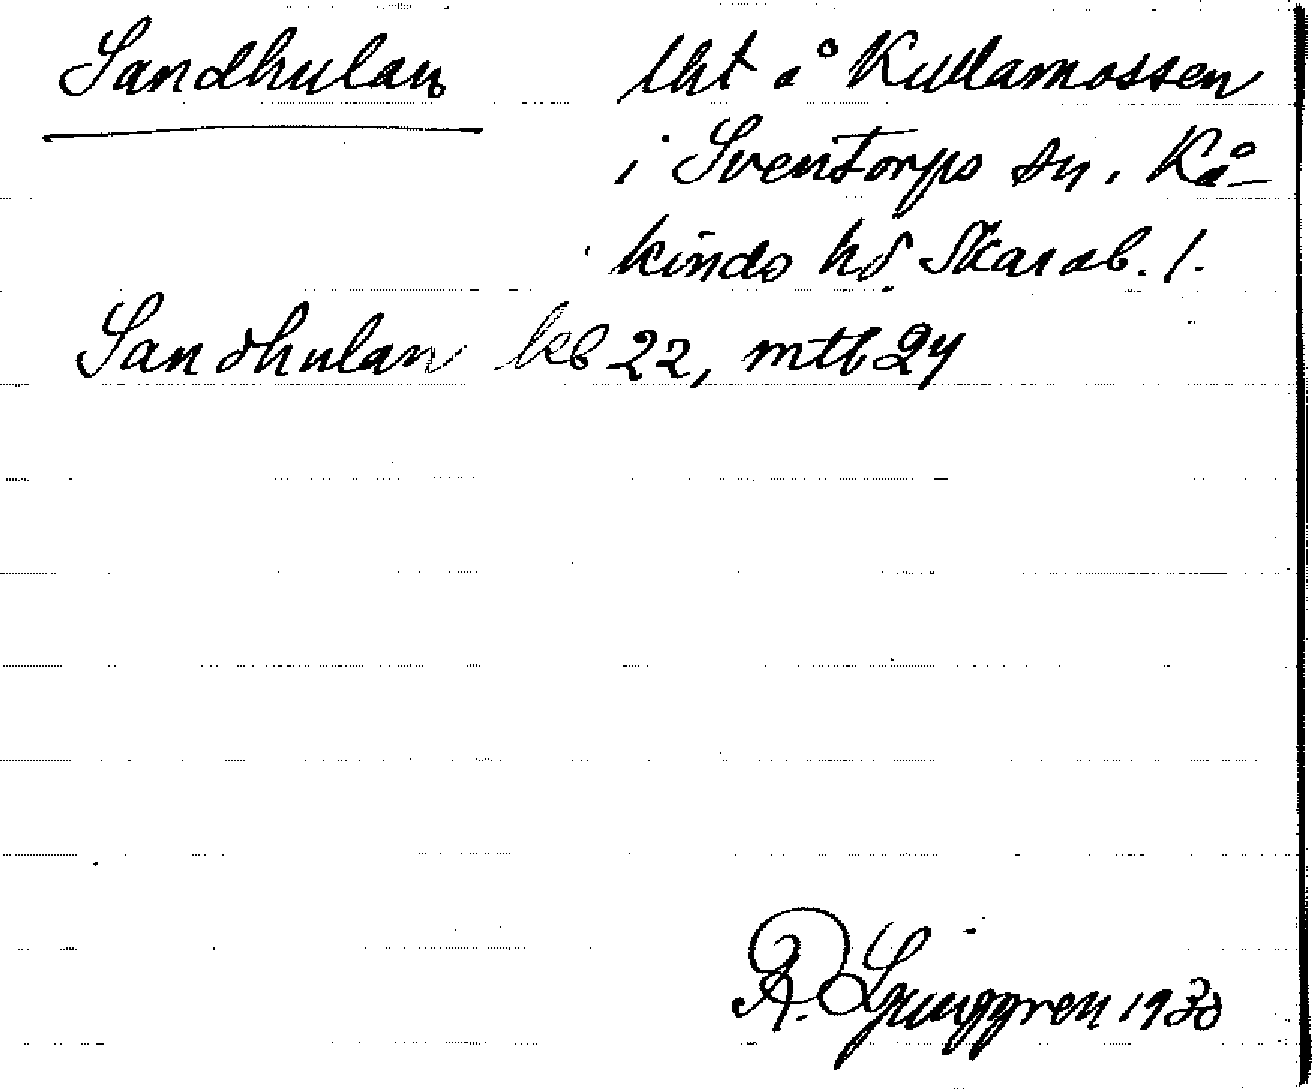 Sandhulan lht å Kullamossen
i Sventorps sn. Kå-
kinds hd Skarab. l.
Sandhulan kb 22, mtb 24
R. Ljunggren 1930